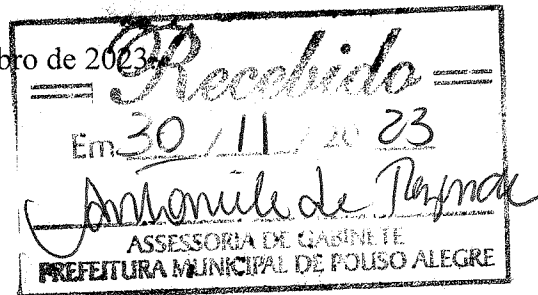 bro de 2023
Recebido
Em 30 / 11 / 20 23
de
ASSESSORIA DE GABINETE
PREFEITURA MUNICIPAL DE POUSO ALEGRE